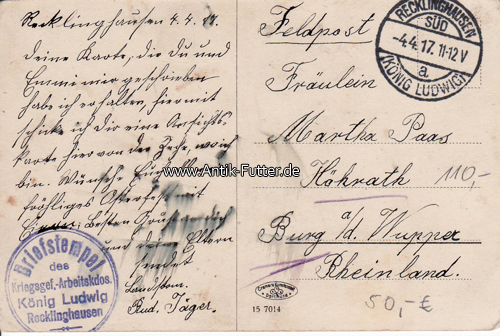 Recklinghausen 4.4.17.
Deine Karte, die Du und
Emmi mir geschrieben
habe ich erhalten, hiermit
schicke ich Dir eine Ansichts
karte hier von der Zeche, wo ich
bin. Wünsche
frohes Osterfest
besten Gruß
und Eltern
sendet
Landstm.
Rud. Jäger.
Briefstempel
des
Kriegsgef.-Arbeitskdos.
König Ludwig
Recklinghausen
Feldpost
RECKLINGHAUSEN
SÜD
-4.4.17.11-12V
a
(KÖNIG LUDWIG)
Fräulein
Martha Paas
Höhrath
110,-
Burg a/d. Wupper
Rheinland.
50,-€
15 7014
www.Antik-Futter.de